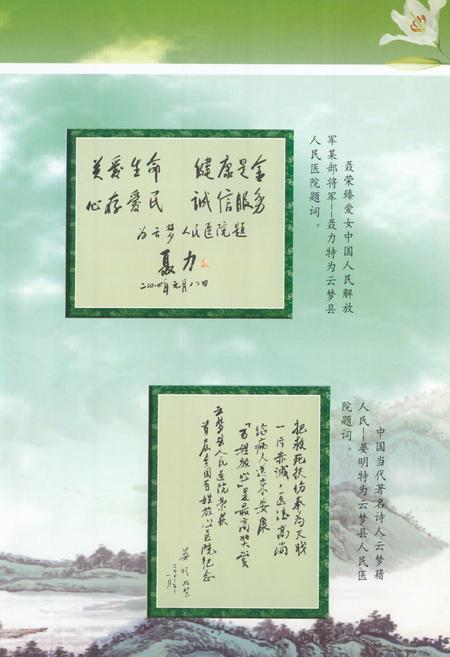 关爱生命 健康是金
心存爱民 诚信服务
为云梦人民医院题
聂力
二〇〇四年元月八日
聂荣臻爱女中国人民解放
军某部将军--聂力特为云梦县
人民医院题词。
把救死扶伤奉为天职
一片赤诚，医德高尚
给病人送来安康
“百姓放心”是最高奖赏
云梦县人民医院荣获
首届全国百姓放心医院纪念
晏明
中国当代著名诗人云梦籍
人氏--晏明特为云梦县人民医
院题词。